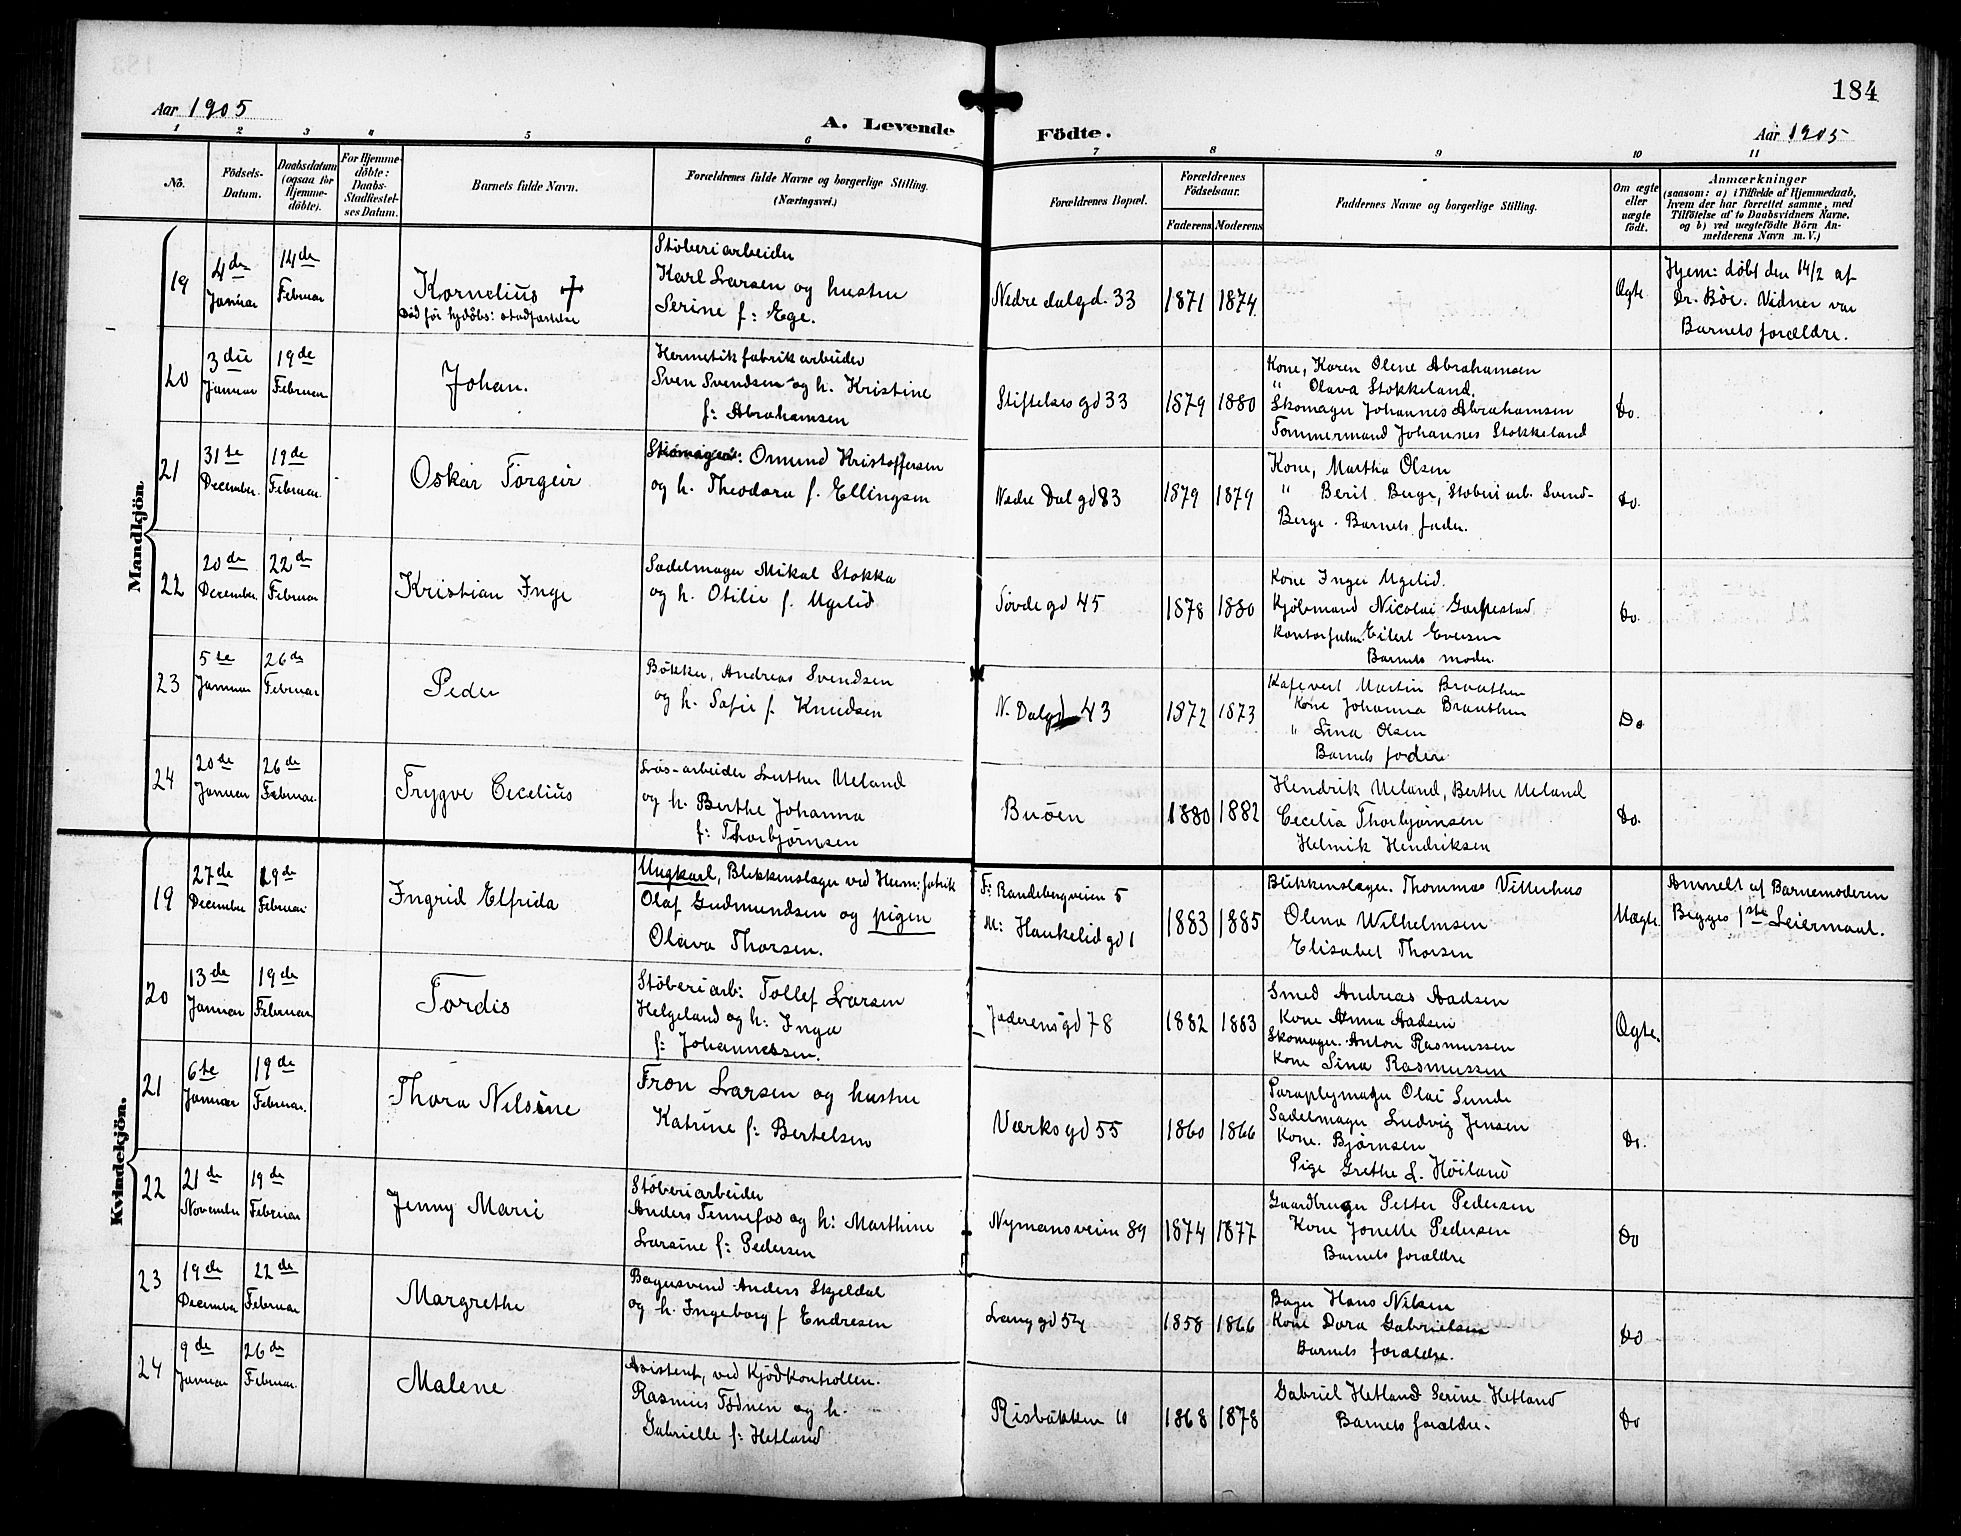 184
Aar 1905
A. Levende Födte.
Aar 1905
1 2 3 4 5 6 7 8 9 10 11
No.
Födsels-Datum.
Daabsdatum (ogsaa for Hjemme-döbte).
For Hjemme-döbte: Daabs-Stadfæstelses Datum.
Barnets fulde Navn.
Forældrenes fulde Navne og borgerlige Stilling.
(Næringsvei.)
Forældrenes Bopæl.
Forældrenes Födselsaar.
Faderens Moderens
Faddernes Navne og borgerlige Stilling.
Om ægte eller uægte födt.
Anmærkninger
(saasom: a) i Tilfælde af Hjemmedaab,
hvem der har forrettet samme, med
Tilföielse af to Daabsvidners Navne,
og b) ved uægtefödte Börn An-
melderens Navn m. V.)
Mandkjön
19
4de Januar
14de Februar
Kornelius +
Død før hjdøbs: stadfæstelse
Støberiarbeider
Karl Larsen og hustru
Serine f: Ege.
Nedre dalgd. 33
1871 1874
Ægte.
Hjem: døbt den 14/2 af
Dr. Bøe. Vidner var
Barnets forældre.
20
3die Januar
19de Februar
Johan.
Hermetikfabrikarbeider
Sven Svendsen og h. Kristine
f: Abrahamsen
Stiftelsesgd 33
1879 1880
Kone, Karen Olene Abrahamsen
" Olava Stokkeland.
Skomager Johannes Abrahamsen
Tømmermand Johannes Stokkeland
Do.
21
31te December.
19de Februar.
Oskar Torgeir
Ormund Kristoffersen
og h. Theodora f. Ellingsen
Nedre Dalgd 83
1879 1879
Kone, Martha Olsen
" Berit Berge, Støberiarb. Svend
Berge. Barnets fader.
Do.
22
20de December.
22de Februar
Kristian Inge
Sadelmager Mikal Stokka
og h. Otilie f. Ugelid
Søvdegd 45
1878 1880
Kone Inger Ugelid.
Kjøbmand Nicolai Garpestad
Eilert Eversen
Barnets moder.
Do.
23
5te Januar
26de Februar
Peder
Bøkker, Andreas Svendsen
og h. Sofie f. Knudsen
N. Dalgd 43
1872 1873
Kafevert Martin Braathen
Kone Johanna Braathen
" Lina Olsen
Barnets fader
Do
24
20de Januar
26de Februar.
Trygve Cecelius
Løs-arbeider Luther Ueland
og h. Berthe Johanna
f: Thorbjørnsen
Buøen
1880 1882
Hendrik Ueland, Berthe Ueland
Cecilia Thorbjørnsen
Helmik Hendriksen
Do.
Kvindekjön.
19
27de December
19de Februar
Ingrid Elfrida
Ungkarl, Blikkenslager ved Herm: fabrik
Olaf Gudmundsen og pigen
Olava Thorsen.
F: Randebergveien 5
M: Haukeligd 1
1883 1885
Blikkenslager. Thommas Vitterhus
Olena Wilhelmsen
Elisabet Thorsen
Uægte.
Anmelt af Barnemoderen
Begges 1ste Leiermaal.
20
13de Januar
19de Februar.
Tordis
Støberiarb: Tollef Larsen
Helgeland og h: Inga
f: Johannessen.
Jæderensgd 78
1882 1883
Smed Andreas Aadsen
Kone Anna Aadsen
Skomager. Anton Rasmussen
Kone Lina Rasmussen
Ægte.
21
6te Januar
19de Februar.
Thora Nilsine
Larsen og hustru
Katrine f: Bertelsen
Værksgd 55
1860 1866
Paraplymager Olai Lunde
Sadelmager Ludvig Jensen
Kone. Bjørnsen
Pige Grethe L. Høiland
Do.
22
21de November
19de Februar
Jenny Marie
Støberiarbeider
Anders Tennefos og h: Marthine
Larsine f: Pedersen
Nymansveien 89
1874 1877
Gaardbruger Petter Pedersen
Kone Jonette Pedersen
Barnets forældre
Do
23
19de December
22de Februar
Margrethe
Bagersvend Anders Skjeldal
og h. Ingeborg f Endresen
Langgd 54
1858 1866
Bager Hans Nilsen
Kone Dora Gabrielsen
Barnets forældre.
Do
24
9de Januar
26de Februar.
Malene
Asistent, ved Kjødkontrollen.
Rasmus Tødnen og h.
Gabrielle f: Hetland
Risbakken 10
1868 1878
Gabriel Hetland Serine Hetland
Barnets forældre.
Do